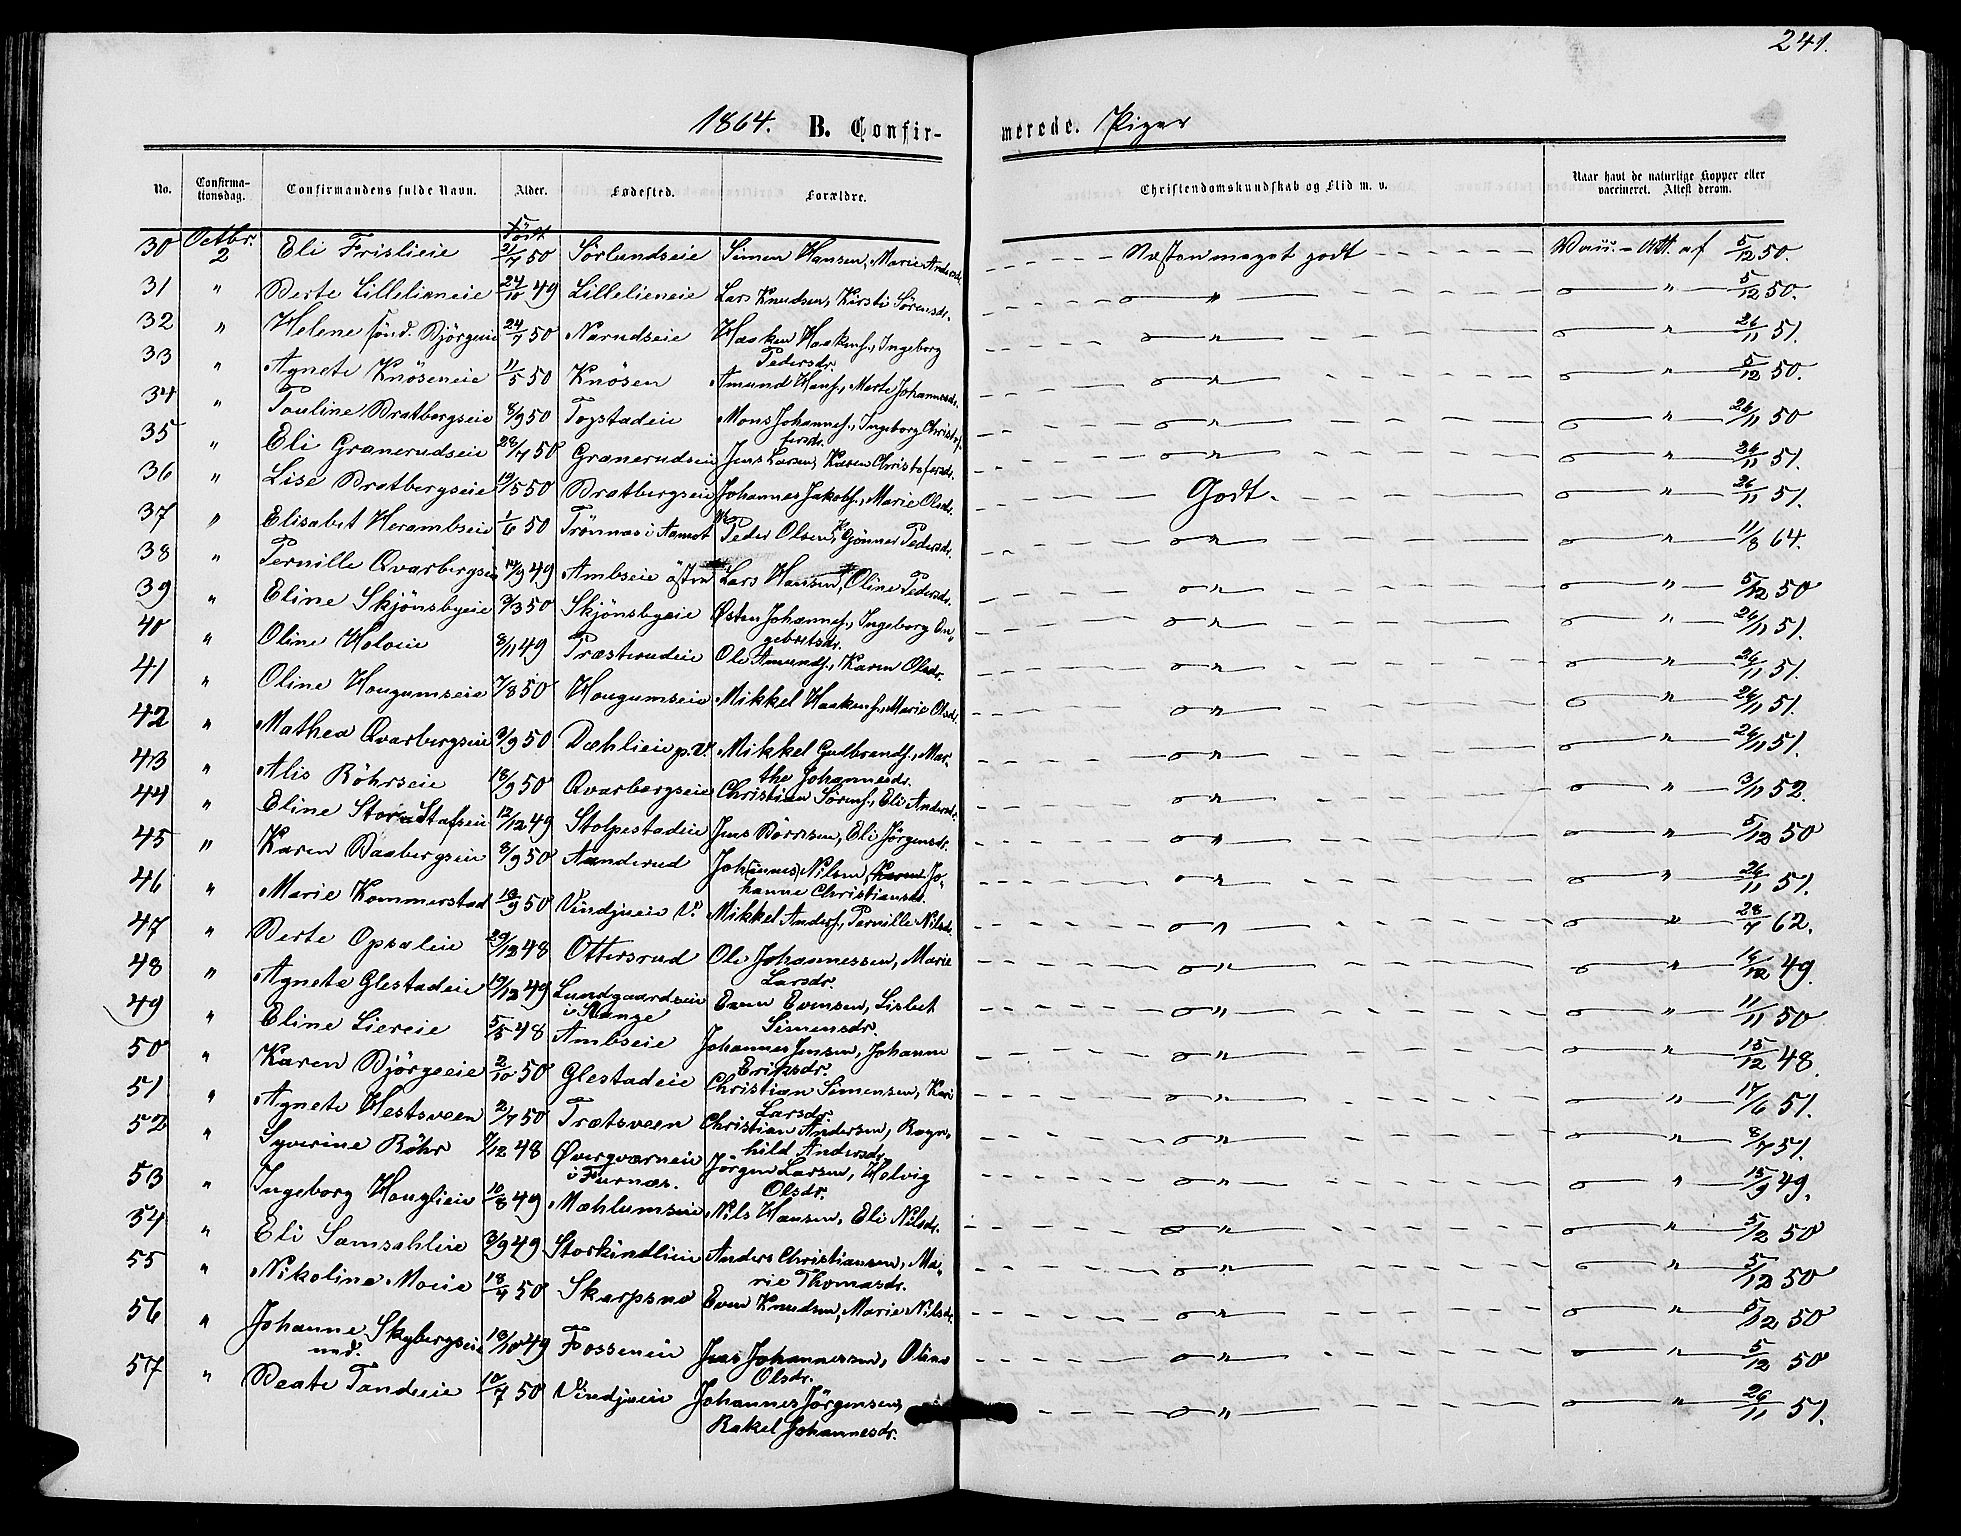 241.
1864. B. Confirmerede. Piger
No. Confirmationsdag. Confirmandens fulde Navn. Alder. Fødested. Forældre. Christendomskundskab og Flid m. v. Naar havt de naturlige Kopper eller vaccineret. Attest derom.
Født
30 Octbr. 2 Eli Frislieie 21/7 50 Sörlundseie Simen Hansen, Marie Andersd. Næsten meget godt Vacc. - Att. af 5/12 50.
31 " Berte Lillelieneie 24/10 49 Lillelieneie Lars Knudsen, Kirsti Sörensdr. " " 5/12 50.
32 " Helene sönd. Björgeeie 24/7 50 Narudseie Haaken Haakens., Ingeborg Pedersdr. " " 26/11 51.
33 " Agnete Knöseneie 11/5 50 Knösen Amund Hans., Marte Johannesdr. " " 5/12 50.
34 " Pouline Bratbergseie 8/9 50 Togstadeie Mons Johannes., Ingeborg Christofersdr. " " 26/11 50
35 " Eli Granerudseie 28/7 50 Granerudseie Jens Larsen, Karen Christofersdr. " " 26/11 51.
36 " Lise Bratbergseie 19/5 50 Bratbergseie Johannes Jakobs., Marie Olsd. Godt. " 26/11 51.
37 " Elisabet Herambseie 1/6 50 Trönnæs i Aamot Peder Olsen, Gönner Pedersdr. " " 11/8 64.
38 " Pernille Qvarbergseie 14/9 49 Ambseie östre Lars Hansen, Oline Pedersdr. " " 5/12 50
39 " Eline Skjönsbyeie 3/3 50 Skjönsbyeie Østen Johannes., Ingeborg Engebretsdr. " " 26/11 51.
40 " Oline Holoeie 8/11 49 Præsterudeie Ole Amunds., Karen Olsdr. " " 26/11 51.
41 " Oline Hougumseie 7/8 50 Hougumseie Mikkel Haakens., Marie Olsd. " " 26/11 51.
42 " Mathea Qvarbergseie 3/9 50 Dæhlieie p.V. Mikkel Gudbrands., Marthe Johannesdr. " " 26/11 51.
43 " Alis Röhrseie 18/9 50 Qvarbergseie Christian Sörens., Eli Andersd. " " 3/11 52.
44 " Eline Storudstafseie 12/12 49 Stolpestadeie Jens Börresen, Eli Jörgensdr. " " 5/12 50
45 " Karen Baabergseie 8/9 50 Aanderud Johannes Nilsen, Johanne Christiansd. " " 26/11 51.
46 " Marie Kommerstad 18/9 50 Vindjueie V. Mikkel Anders., Pernille Nilsd. " " 28/7 62.
47 " Berte Opsaleie 29/12 48 Ottersrud Ole Johannessen, Marie Larsdr. " " 14/12 49.
48 " Agnete Glestadeie 19/12 49 Lundgaardseie i Stange Even Evensen, Lisbet Simensdr. " " 11/11 50
49 " Eline Liereie 5/5 48 Ambseie Johannes Jensen, Johanne Eriksdr. " " 15/12 48.
50 " Karen Björgeeie 2/10 50 Glestadeie Christian Simensen, Kari Larsdr. " " 17/6 51.
51 " Agnete Hestsveen 2/7 50 Trætsveen Christian Andersen, Ragnhild Andersdr. " " 8/7 51.
52 " Syverine Röhr 7/12 48 Övergværneie i Furnæs. Jörgen Larsen, Helvig Olsdr. " " 15/9 49.
53 " Ingeborg Houglieie 10/8 49 Mæhlumseie Nils Hansen, Eli Nilsdr. " " 5/12 50
54 " Eli Samsahleie 3/9 49 Storkindlieie Anders Christiansen, Marie Thomasdr. " " 5/12 50
55 " Nikoline Moeie 18/4 50 Skarpsno Even Knudsen, Marie Nilsdr. " " 5/12 50
56 " Johanne Skybergseie ned. 18/10 49 Fosseneie Jens Johannessen, Oline Olsdr. " " 5/12 50
57 " Beate Tandeeie 10/7 50 Vindjueie Johannes Jörgensen, Rakel Johannesdr. " " 26/11 51.